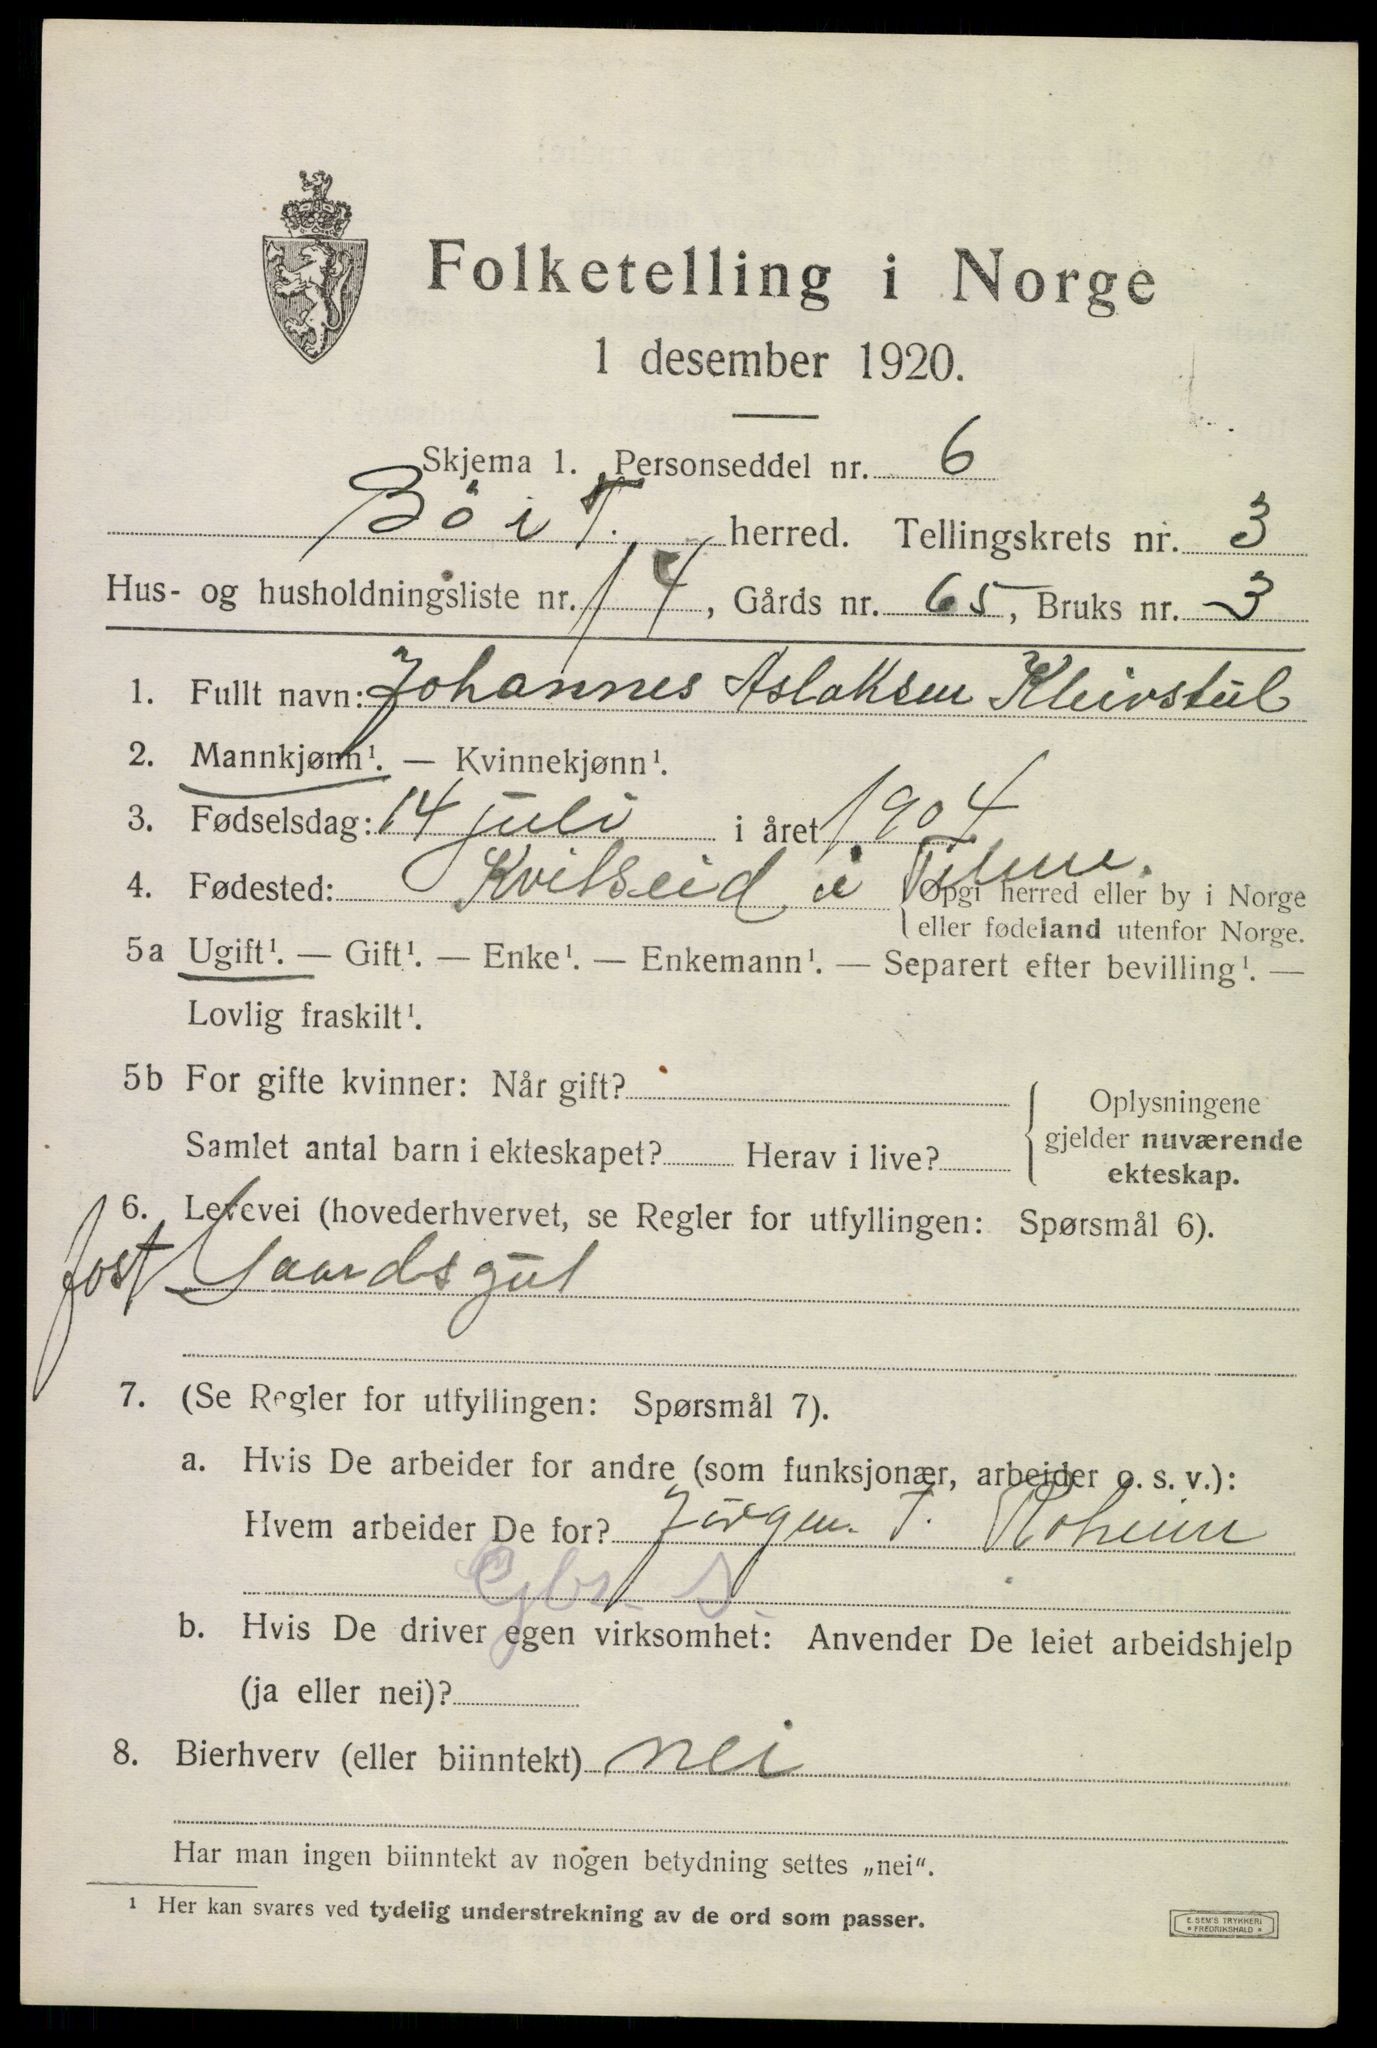 Folketelling i Norge
1 desember 1920.
Skjema 1. Personseddel nr. 6
Bö i T. herred. Tellingskrets nr. 3
Hus- og husholdningsliste nr. 14, Gårds nr. 65, Bruks nr. 3
1. Fullt navn: Johannes Aslaksen Kleivstul
2. Mannkjønn¹. — Kvinnekjønn¹.
3. Fødselsdag: 14 juli i året 1904
4. Fødested: Kvitseid i {Opgi herred eller by i Norge
eller fødeland utenfor Norge.
5a Ugift¹. — Gift¹. — Enke¹. — Enkemann¹. — Separert efter bevilling¹. —
Lovlig fraskilt¹.
5b For gifte kvinner: Når gift?
Samlet antal barn i ekteskapet? Herav i live?
Oplysningene
gjelder nuværende
ekteskap.
6. Levevei (hovederhvervet, se Regler for utfyllingen: Spørsmål 6).
fost Gaardsgut
7. (Se Regler for utfyllingen: Spørsmål 7).
a. Hvis De arbeider for andre (som funksjonær, arbeider o. s. v.):
Hvem arbeider De for? Jörgen T. Roheim
Gbr. S.
b. Hvis De driver egen virksomhet: Anvender De leiet arbeidshjelp
(ja eller nei)?
8. Bierhverv (eller biinntekt) nei
Har man ingen biinntekt av nogen betydning settes „nei".
¹ Her kan svares ved tydelig understrekning av de ord som passer.
E. SEM'S TRYKKERI
* FREDRIKSHALD *